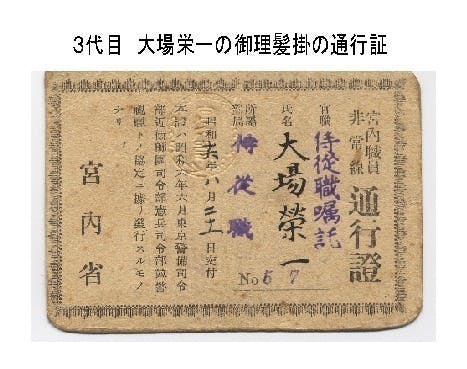 3代目 大場栄一の御理髪掛の通行証
宮内職員
非常線
通行證
官職 侍從職嘱託
氏名 大場榮一
No 57
所属部局 侍從職
昭和 年八月 日交付
昭和六年六月東京警備司令
部近衛師團司令部憲兵司令部警
視廳トノ協定ニ據リ發行スルモノ
ナリ
宮内省